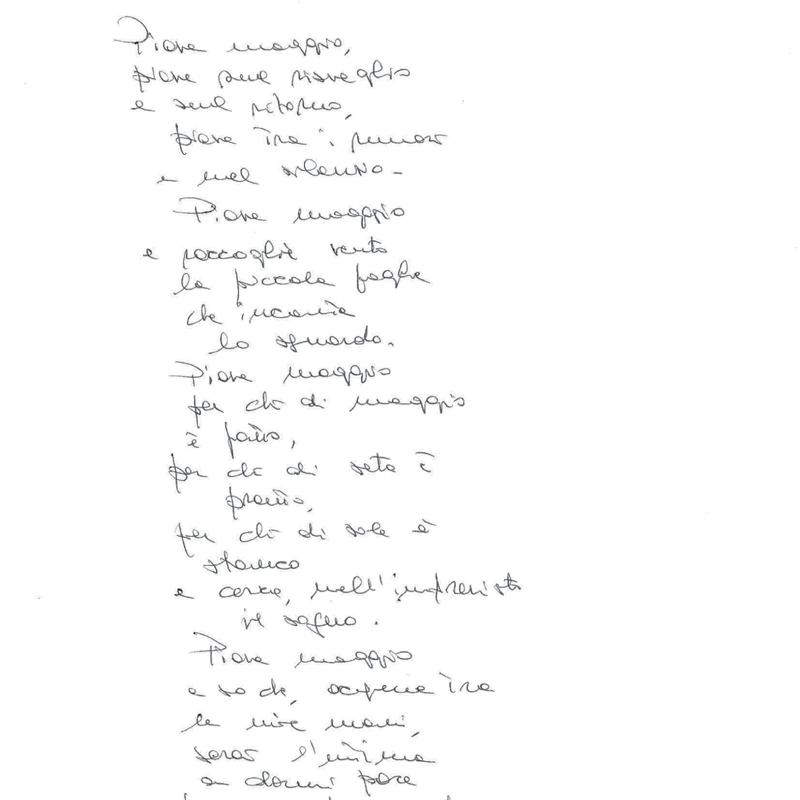 Piove maggio,
piove sul risveglio
e sul ritorno,
piove tra i rumori
e nel silenzio -
Piove maggio
e raccoglie vento
la piccola foglia
che incanta
lo sguardo.
Piove maggio
per chi di maggio
è fatto,
per chi di seta è
pronto,
per chi di sole è
stanco
e cerca, nell'imprevisto
il sogno.
Piove maggio
e so che, acqua tra
le mie mani,
sarai l'ultima
a darmi pace